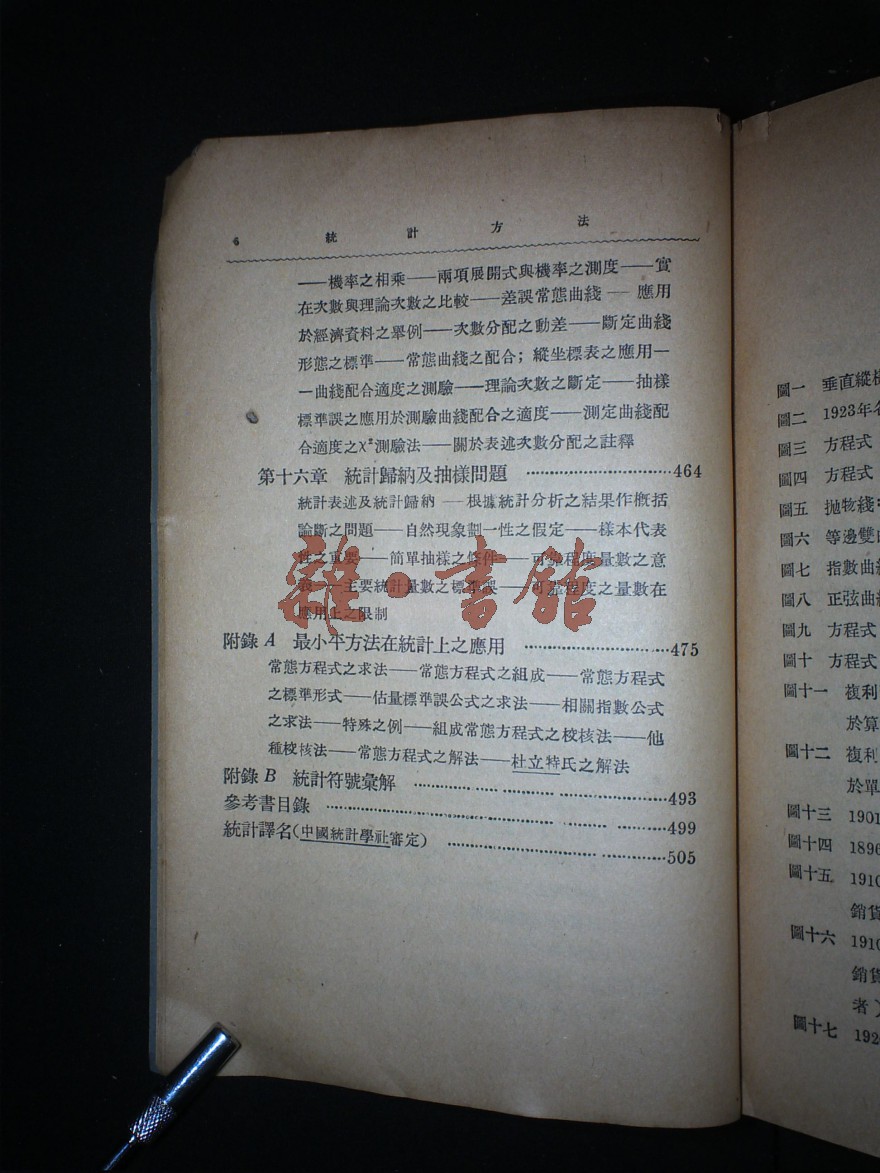 6 統計方法
——機率之相乘——兩項展開式與機率之測度——實
在次數與理論次數之比較——差誤常態曲綫——應用
於經濟資料之舉例——次數分配之動差——斷定曲綫
形態之標準——常態曲綫之配合；縱坐標表之應用—
—曲綫配合適度之測驗——理論次數之斷定——抽樣
標準誤之應用於測驗曲綫配合之適度——測定曲綫配
合適度之χ²測驗法——關於表述次數分配之註釋
第十六章 統計歸納及抽樣問題 ……………………464
統計表述及統計歸納——根據統計分析之結果作概括
論斷之問題——自然現象劃一性之假定——樣本代表
性之重要——簡單抽樣之條件——可靠程度量數之意
義——主要統計量數之標準誤——可靠程度之量數在
應用上之限制
附錄A 最小平方法在統計上之應用 ……………………475
常態方程式之求法——常態方程式之組成——常態方程式
之標準形式——估量標準誤公式之求法——相關指數公式
之求法——特殊之例——組成常態方程式之校核法——他
種校核法——常態方程式之解法——杜立特氏之解法
附錄B 統計符號彙解 ……………………493
參考書目錄 ……………………499
統計譯名(中國統計學社審定) ……………………505
雜·書館
圖一 垂直縱
圖二 1923年各
圖三 方程式
圖四 方程式
圖五 拋物綫
圖六 等邊雙曲
圖七 指數曲
圖八 正弦曲
圖九 方程式
圖十 方程式
圖十一 複利
於算
圖十二 複利
於單
圖十三 1901
圖十四 1896
圖十五 1910
銷貨
圖十六 1910
銷貨
者)
圖十七 192